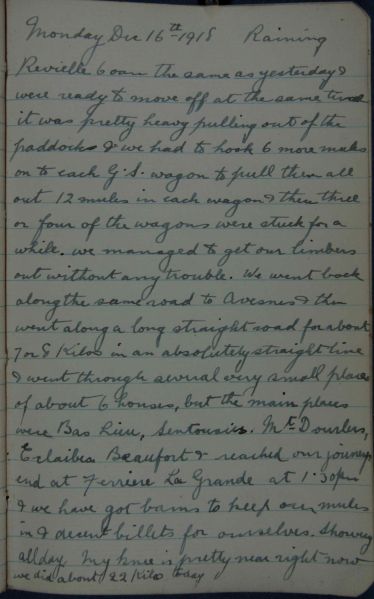 Monday Dec 16th 1918 Raining
Revielle 6 oam the same as yesterday &
were ready to move off at the same time
it was pretty heavy pulling out of the
paddocks & we had to hook 6 more mules
on to each G.S. wagon to pull them all
out 12 mules in each wagon & then three
or four of the wagons were stuck for a
while. we managed to get our limbers
out without any trouble. We went back
along the same road to Avesnes & then
went along a long straight road for about
7 or 8 Kilos in an absolutely straight line
& went through several very small places
of about 6 houses, but the main places
were Bas Lieu, Sentousies. Mt Dourlers,
Eclaibea Beaufort & reached our journeys
end at Ferriere La Grande at 1.30pm
& we have got barns to keep our mules
in & decent billets for ourselves. Showery
all day. My knee is pretty near right now
we did about 22 Kilos today